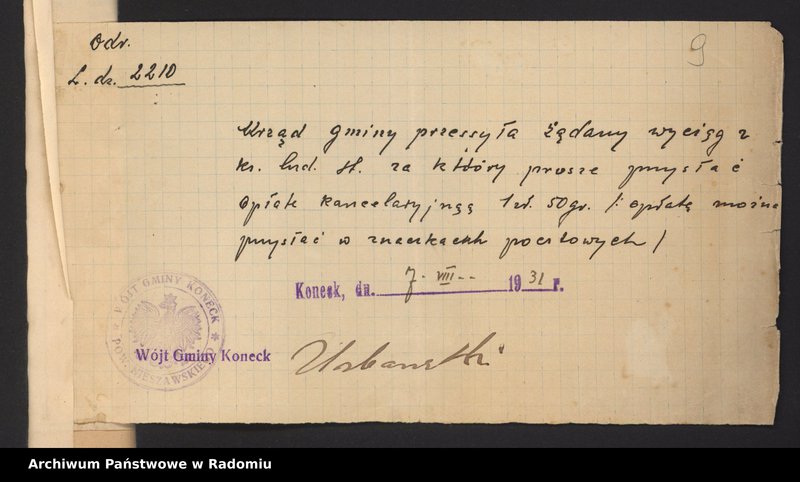 Odr.
9
L. dz. 2210
Urząd gminy przesyła żądany wyciąg z
ks. lud. st. za który proszę przysłać
opłatę kancelaryjną 1 zł. 50 gr. /: opłatę można
przysłać w znaczkach pocztowych /
Koneck, dn. 7. VIII-- 1931 r.
WÓJT GMINY KONECK * POW. NIESZAWSKIEGO *
Wójt Gminy Koneck Urbanski
Archiwum Państwowe w Radomiu